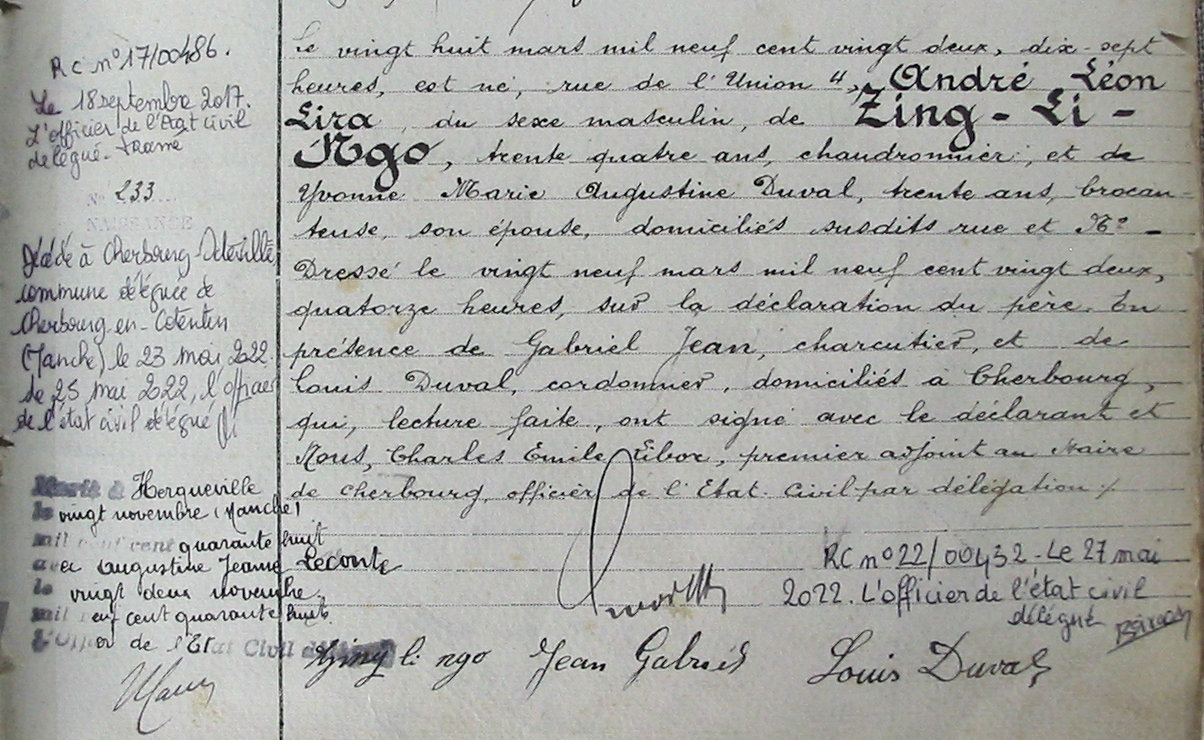 RC n° 17/00486.
Le 18 septembre 2017.
L'officier de l'état civil
délégué.
N° 233
NAISSANCE
Décédé à Cherbourg-Octeville
commune déléguée de
Cherbourg-en-Cotentin
(Manche) le 23 mai 2022.
Le 25 mai 2022, l'officier
de l'état civil délégué
Marié à Herqueville
le vingt novembre (Manche)
mil neuf cent quarante huit
avec Augustine Jeanne Leconte
le vingt deux novembre
mil neuf cent quarante huit.
L'Officier de l'Etat Civil délégué
Le vingt huit mars mil neuf cent vingt deux, dix-sept
heures, est né, rue de l'Union 4, André Léon
Lira, du sexe masculin, de Zing-Li-
Ngo, trente quatre ans, chaudronnier, et de
Yvonne Marie Augustine Duval, trente ans, brocan-
teuse, son épouse, domiciliés susdits rue et N°. -
Dressé le vingt neuf mars mil neuf cent vingt deux,
quatorze heures, sur la déclaration du père. En
présence de Gabriel Jean, charcutier, et de
Louis Duval, cordonnier, domiciliés à Cherbourg,
qui, lecture faite, ont signé avec le déclarant et
Nous, Charles Emile Libor, premier adjoint au Maire
de Cherbourg, officier de l'Etat-Civil par délégation ./.
RC n° 22/00432 - Le 27 mai
2022. L'officier de l'état civil
délégué
Zing li ngo Jean Gabriel Louis Duval